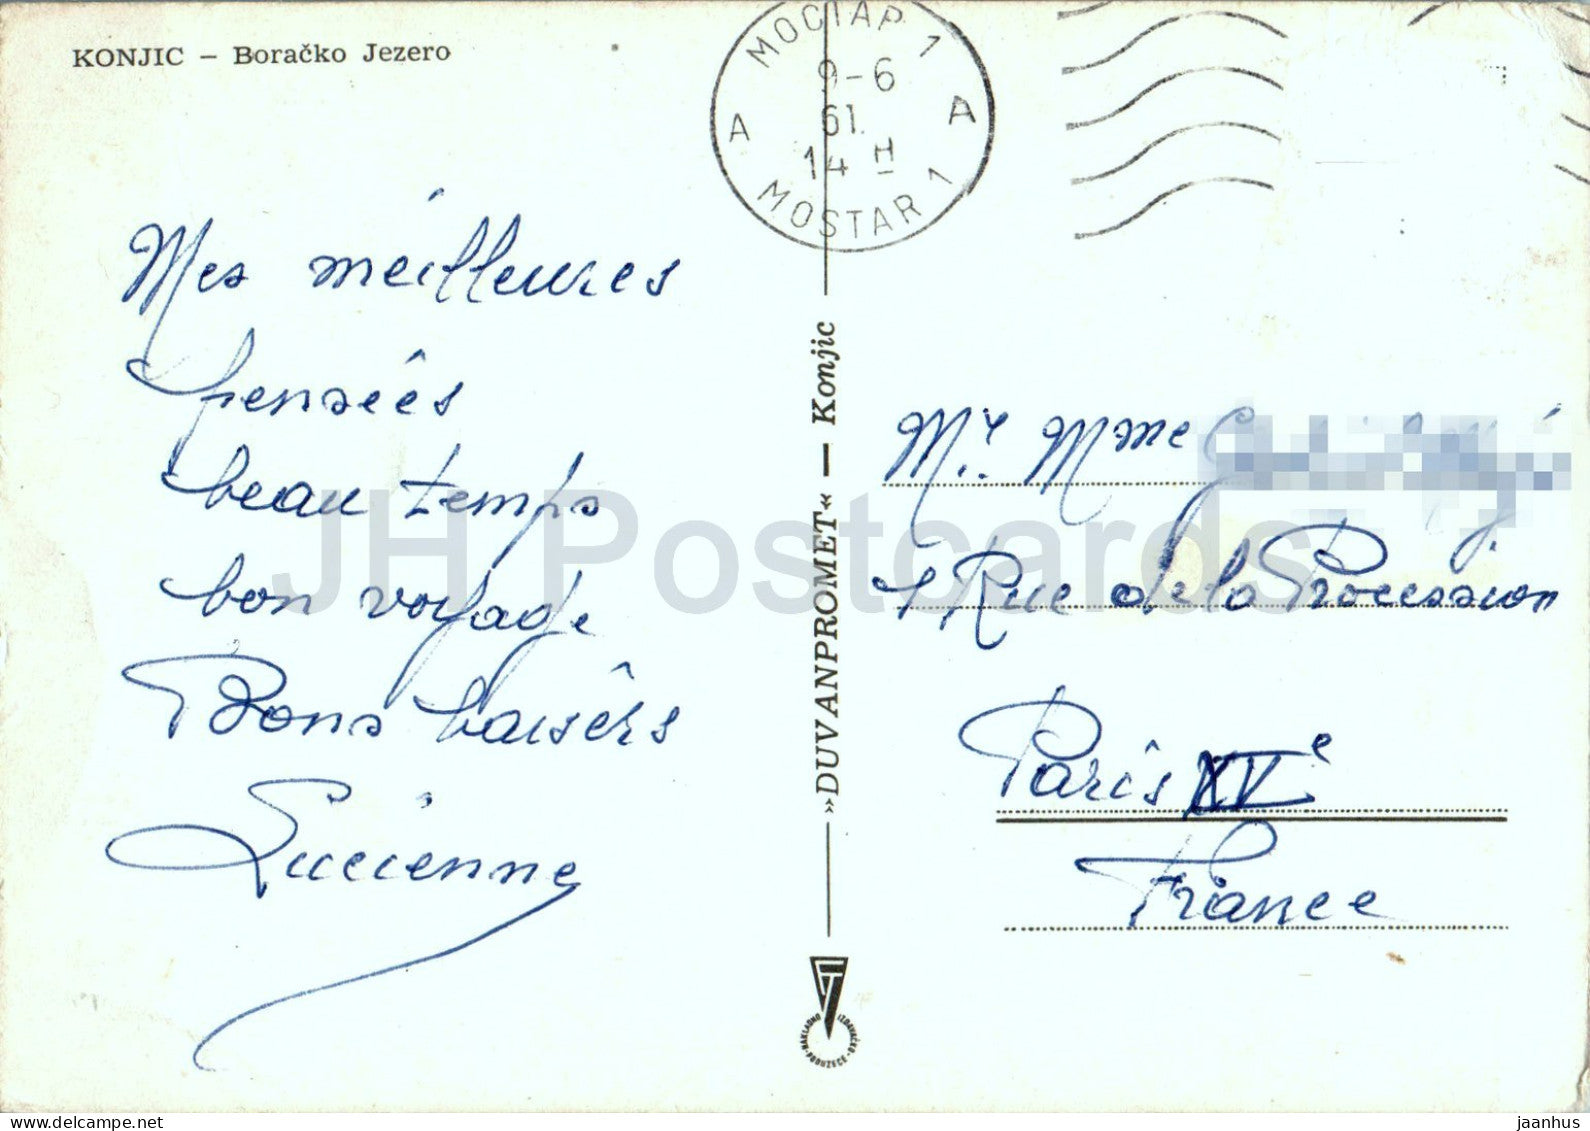 KONJIC – Boračko Jezero
МОСТАР 1
9-6
61.
14 H
A A
MOSTAR 1
Mes meilleures
pensées
beau temps
bon voyage
Bons baisérs
Lucienne
»DUVANPROMET« — Konjic
Mr. Mme
Rue de la Procession
Paris XVe
France
NAKLADNO IZDAVAČKO PODUZEĆE
JH Postcards
delcampe.net
jaanhus